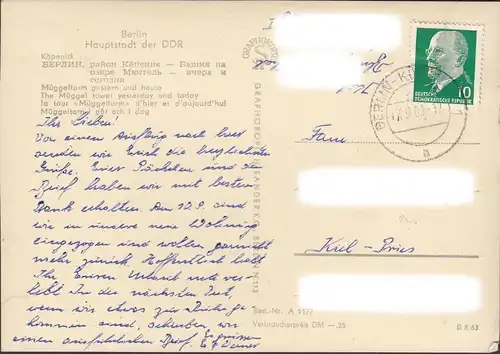 Berlin
Hauptstadt der DDR
Köpenick
БЕРЛИН, район Кёпеник — Башня на
озере Мюггель — вчера и
сегодня
Müggelturm gestern und heute
The Müggel tower yesterday and today
la tour «Müggelturm» d'hier et d'aujourd'hui
Müggeltorn i går och i dag
Ihr Lieben!
Von einem Ausflug nach hier
senden wir Euch die herzlichsten
Grüße. Euer Päckchen und den
Brief haben wir mit bestem
Dank erhalten. Am 12.9. sind
wir in unsere neue Wohnung
eingezogen und wollen garnicht
mehr zurück. Hoffentlich habt
Ihr Euren Urlaub nett ver-
lebt. In der nächsten Zeit,
wenn wir etwas zur Ruhe ge-
kommen sind, schreiben wir
einen ausführlichen Brief. Es grüssen
DEUTSCHE
DEMOKRATISCHE REPUBLIK
10
BERLIN-KÖ
a
Fam.
Kiel-Pries
Best.-Nr. A 1177
Verbraucherpreis DM —,25
B 8 63